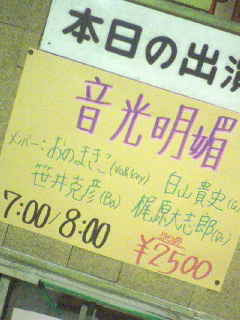 本日の出演
音光明媚
メンバー：おのまきこ(Vo&Key) 白山貴史(G)
笹井克彦(Ba) 梶原大志郎(Dr.)
7:00/8:00
¥2500